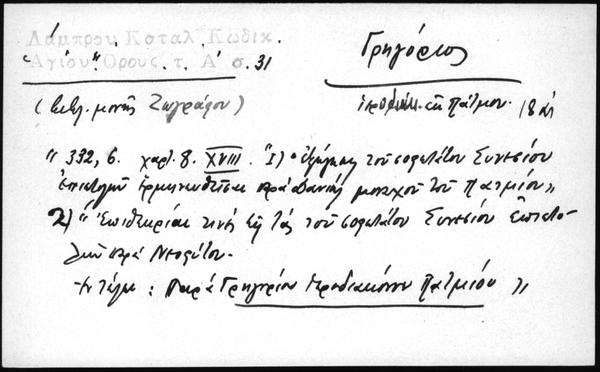 Λάμπρου Καταλ. Κώδικ.
Ἁγίου Ὄρους. τ. Α' σ. 31
Γρηγόριος
(Βιβλ. μονῆς Ζωγράφου)
ἱεροδιάκ. ἐν Πάτμου. 18 αἰ
" 332, 6. χαρτ. 8. XVIII. 1) Ἐξήγησις τοῦ σοφωτάτου Συνεσίου
ἐπιστολῶν ἑρμηνευθεῖσαι παρὰ Δανιὴλ μοναχοῦ τοῦ Πατμίου"
2) " Ἐπιθεωρίαι τινὲς εἰς τὰς τοῦ σοφωτάτου Συνεσίου ἐπιστο-
λὰς παρὰ Νεοφύτου.
Ἐν τέλει: Παρὰ Γρηγορίου ἱεροδιακόνου Πατμίου "